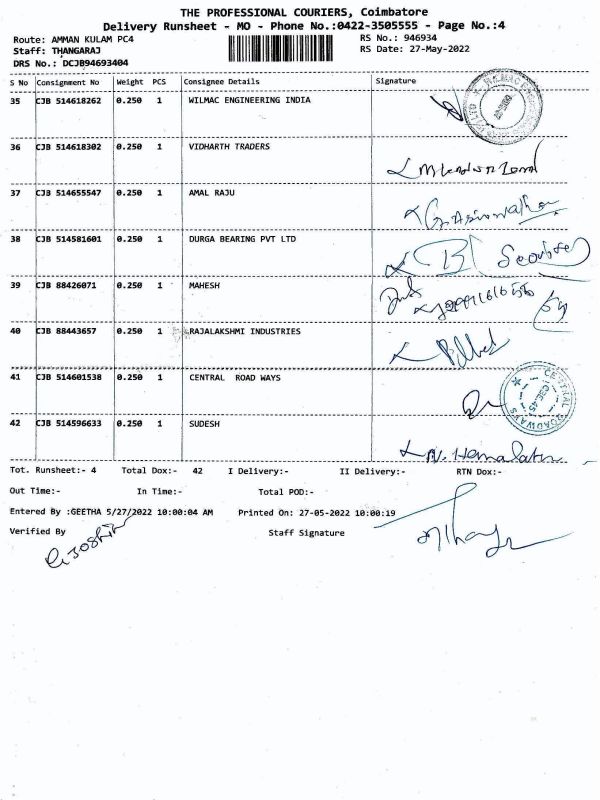 THE PROFESSIONAL COURIERS, Coimbatore
Delivery Runsheet - MO - Phone No.:0422-3505555 - Page No.:4
Route: AMMAN KULAM PC4 RS No.: 946934
Staff: THANGARAJ RS Date: 27-May-2022
DRS No.: DCJB94693404
S No Consignment No Weight PCS Consignee Details Signature
35 CJB 514618262 0.250 1 WILMAC ENGINEERING INDIA
36 CJB 514618302 0.250 1 VIDHARTH TRADERS
37 CJB 514655547 0.250 1 AMAL RAJU
38 CJB 514581601 0.250 1 DURGA BEARING PVT LTD
39 CJB 88426071 0.250 1 MAHESH
40 CJB 88443657 0.250 1 RAJALAKSHMI INDUSTRIES
41 CJB 514601538 0.250 1 CENTRAL ROAD WAYS
CENTRAL ROADWAYS
CBE-45
42 CJB 514596633 0.250 1 SUDESH
N. Hemalatha
Tot. Runsheet:- 4 Total Dox:- 42 I Delivery:- II Delivery:- RTN Dox:-
Out Time:- In Time:- Total POD:-
Entered By :GEETHA 5/27/2022 10:00:04 AM Printed On: 27-05-2022 10:00:19
Verified By Staff Signature